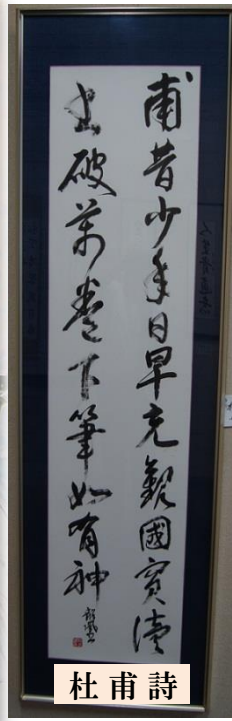 甫昔少年日早充觀國賓讀
書破萬卷下筆如有神
杜甫詩